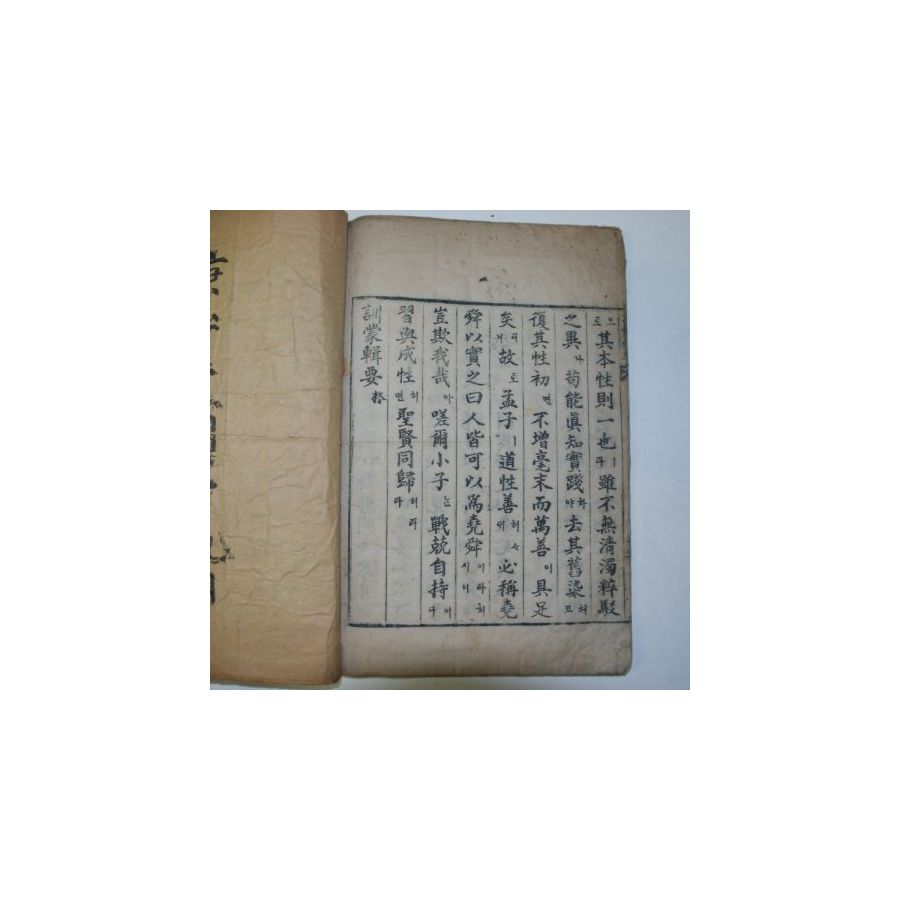 으로其本性則一也ㅣ라雖不無淸濁粹駁
之異나苟能眞知實踐하야去其舊染허고
復其性初면不增毫末而萬善이具足
矣리니故로孟子ㅣ道性善허사되必稱堯
舜以實之曰人皆可以爲堯舜이라허시니
豈欺我哉아嗟爾小子는戰兢自持이다
習與成性허면聖賢同歸허리라
訓蒙輯要終